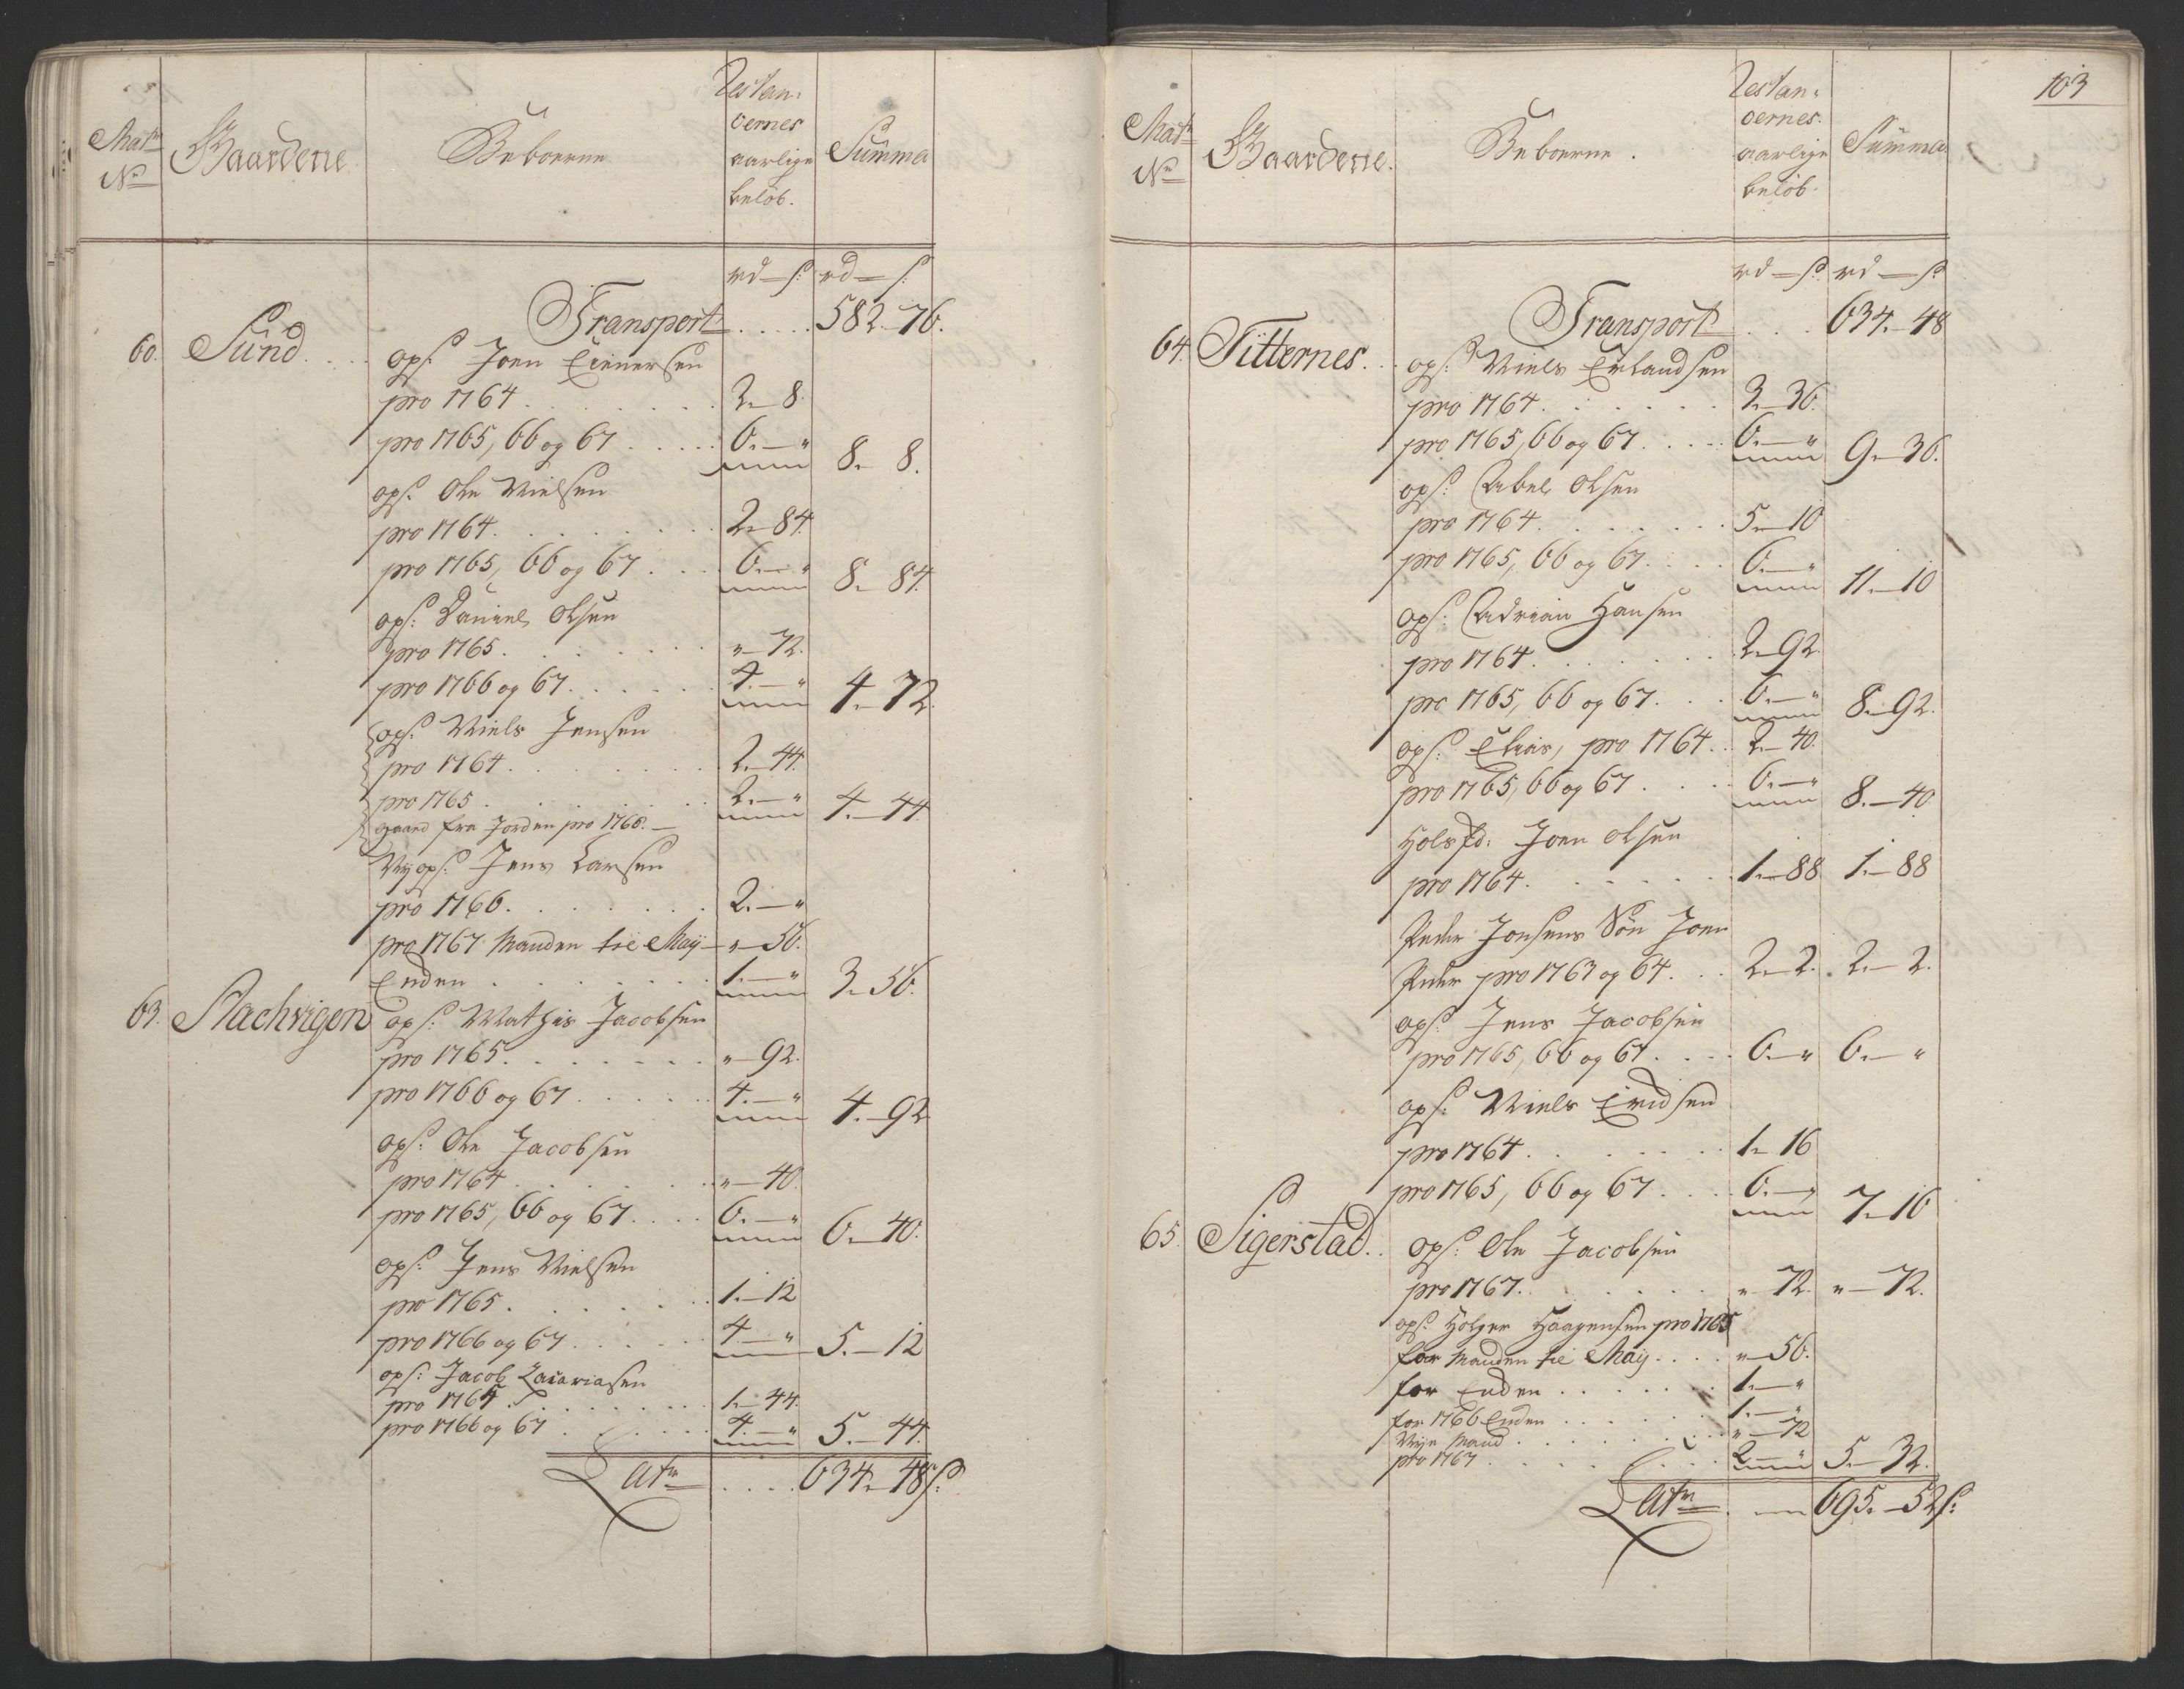 Matr No
Gaardene
Beboerne
Restan-
cernes
aarlige
Beløb.
Summa
rd — s: rd — s:
Transport . . . . 582. 76.
60. Sund . . . ops: Joen Eienersen
pro 1764 . . . . . 2 - 8.
pro 1765, 66 og 67 . . . . 6. — " 8. - 8.
ops: Ole Nielsen
pro 1764 . . . . . 2 - 84.
pro 1765, 66 og 67 . . . 6. — " 8. - 84.
ops: Daniel Olsen
pro 1765 . . . . . " - 72.
pro 1766 og 67 . . . . 4. — " 4. - 72.
ops: Niels Jensen
pro 1764 . . . . . 2. - 44.
pro 1765 . . . . . 2. — " 4. - 44
gaaed fra Jorden pro 1766. —
Ny ops: Jens Larsen
pro 1766 . . . . . 2. — "
pro 1767 Manden til Maij — " - 56.
Enden . . . . . 1. — " 3 - 56.
63. Stachvigen ops: Mathis Jacobsen
pro 1765 . . . . . " - 92.
pro 1766 og 67 . . . . 4. — " 4. - 92
ops: Ole Jacobsen
pro 1764 . . . . . " - 40.
pro 1765, 66 og 67 . . . . 6. — " 6. - 40.
ops: Jens Nielsen
pro 1765 . . . . . 1. - 12
pro 1766 og 67 . . . . 4 — " 5. - 12
ops: Jacob Zacariasen
pro 1765 . . . . . 1. - 44.
pro 1766 og 67 . . . . 4. — " 5. - 44.
Latr . . . . 634. - 48 s:
103
Matr No
Gaardene.
Beboerne.
Restan-
cernes.
aarlige
Beløb.
Summa
rd — s: rd — s:
Transport . . . 634. - 48
64. Titternes . . ops: Niels Erlandsen
pro 1764 . . . . . 3 - 36.
pro 1765, 66 og 67 . . . . 6. — " 9 - 36.
ops: Abel Olsen
pro 1764 . . . . . 5. - 10
pro 1765, 66 og 67 . . . . 6. — " 11. - 10
ops: Adrian Hansen
pro 1764 . . . . . 2 - 92
pro 1765, 66 og 67 . . . 6. — " 8. - 92.
ops: Elias, pro 1764 . . 2. - 40.
pro 1765, 66 og 67 . . . 6. — " 8. - 40.
Joen Olsen
pro 1764 . . . . . 1. - 88 1. - 88
Peder Jonsens Søn Joen
Peder pro 1763 og 64 . . . 2 - 2. 2. - 2.
ops: Jens Jacobsen
pro 1765, 66 og 67 . . . . 6. - " 6. - "
ops: Niels Eridsen
pro 1764 . . . . . 1. - 16
pro 1765, 66 og 67 . . . . 6. — " 7 - 16
65. Sigerstad . . ops: Ole Jacobsen
pro 1767 . . . . . " - 72. " - 72.
ops: Holger Haagensen pro 1765
for Manden til Maij . . . . " - 56.
for Enden . . . . . 1. - "
for 1766 Enden . . . . . 1. - "
Nye Mand . . . . . " - 72
pro 1767 . . . . . 2 — " 5. - 32.
Latr . — 695. - 52 s: